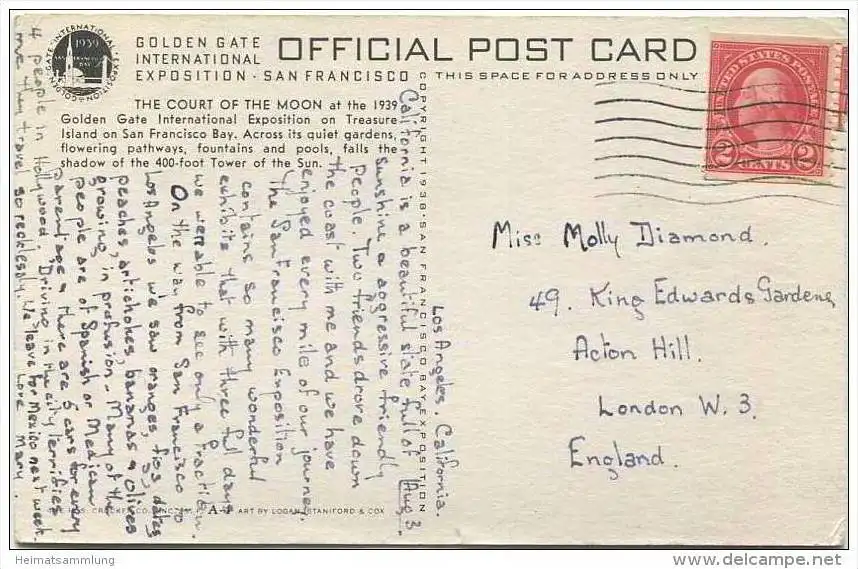 GOLDEN GATE
INTERNATIONAL
EXPOSITION · SAN FRANCISCO
OFFICIAL POST CARD
THIS SPACE FOR ADDRESS ONLY
GOLDEN GATE · INTERNATIONAL · EXPOSITION
1939
SAN FRANCISCO BAY
THE COURT OF THE MOON at the 1939
Golden Gate International Exposition on Treasure
Island on San Francisco Bay. Across its quiet gardens,
flowering pathways, fountains and pools, falls the
shadow of the 400-foot Tower of the Sun.
COPYRIGHT 1938 · SAN FRANCISCO BAY EXPOSITION
UNITED STATES POSTAGE
2 CENTS 2
Los Angeles. California.
Aug 3.
California is a beautiful state full of
sunshine & aggressive friendly
people. Two friends drove down
the coast with me and we have
enjoyed every mile of our journey.
The San Francisco Exposition
contains so many wonderful
exhibits that with three full days
we were able to see only a fraction.
On the way from San Francisco to
Los Angeles we saw oranges, figs, dates
peaches, artichokes, bananas & olives
growing in profusion. Many of the
people are of Spanish or Mexican
parentage & there are 5 cars for every
4 people in Hollywood. Driving in the city terrifies
me they travel so recklessly. We leave for Mexico next week.
Love Mary.
Miss Molly Diamond.
49. King Edwards Gardens
Acton Hill.
London W. 3.
England.
A-4 ART BY LOGAN, STANIFORD & COX
Heimatsammlung
www.delcampe.net